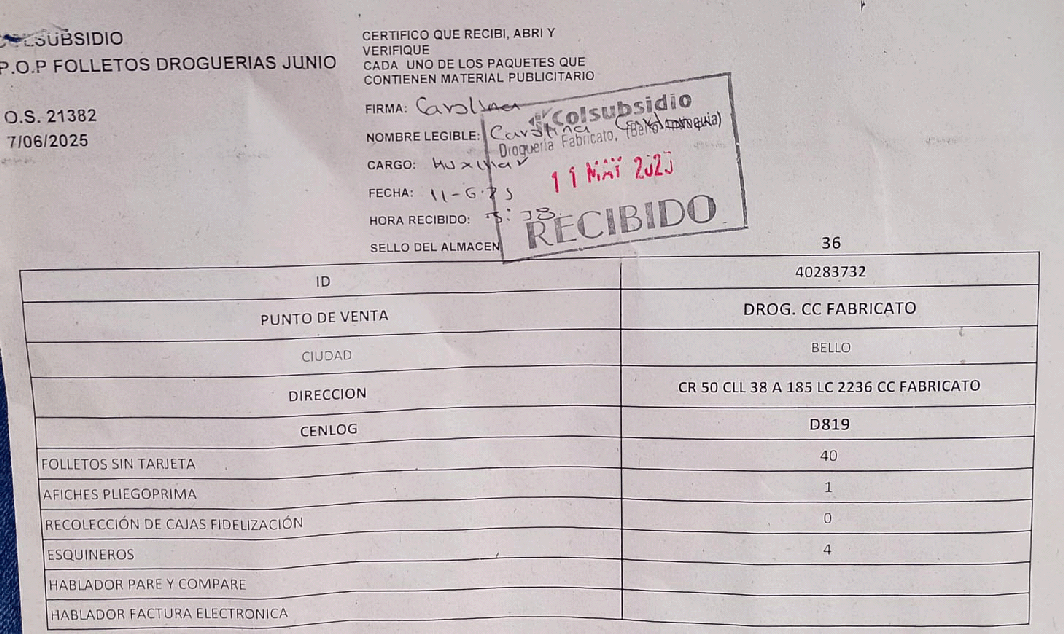 COLSUBSIDIO
P.O.P FOLLETOS DROGUERIAS JUNIO
O.S. 21382
7/06/2025
CERTIFICO QUE RECIBI, ABRI Y
VERIFIQUE
CADA UNO DE LOS PAQUETES QUE
CONTIENEN MATERIAL PUBLICITARIO
FIRMA: Carolina
NOMBRE LEGIBLE: Carolina
CARGO: Auxiliar
FECHA: 11-6-25
HORA RECIBIDO:
SELLO DEL ALMACEN
Colsubsidio
Droguería Fabricato, (Bello Antioquia)
11 MAY 2025
RECIBIDO
36
ID 40283732
PUNTO DE VENTA DROG. CC FABRICATO
CIUDAD BELLO
DIRECCION CR 50 CLL 38 A 185 LC 2236 CC FABRICATO
CENLOG D819
FOLLETOS SIN TARJETA 40
AFICHES PLIEGOPRIMA 1
RECOLECCIÓN DE CAJAS FIDELIZACIÓN 0
ESQUINEROS 4
HABLADOR PARE Y COMPARE
HABLADOR FACTURA ELECTRONICA